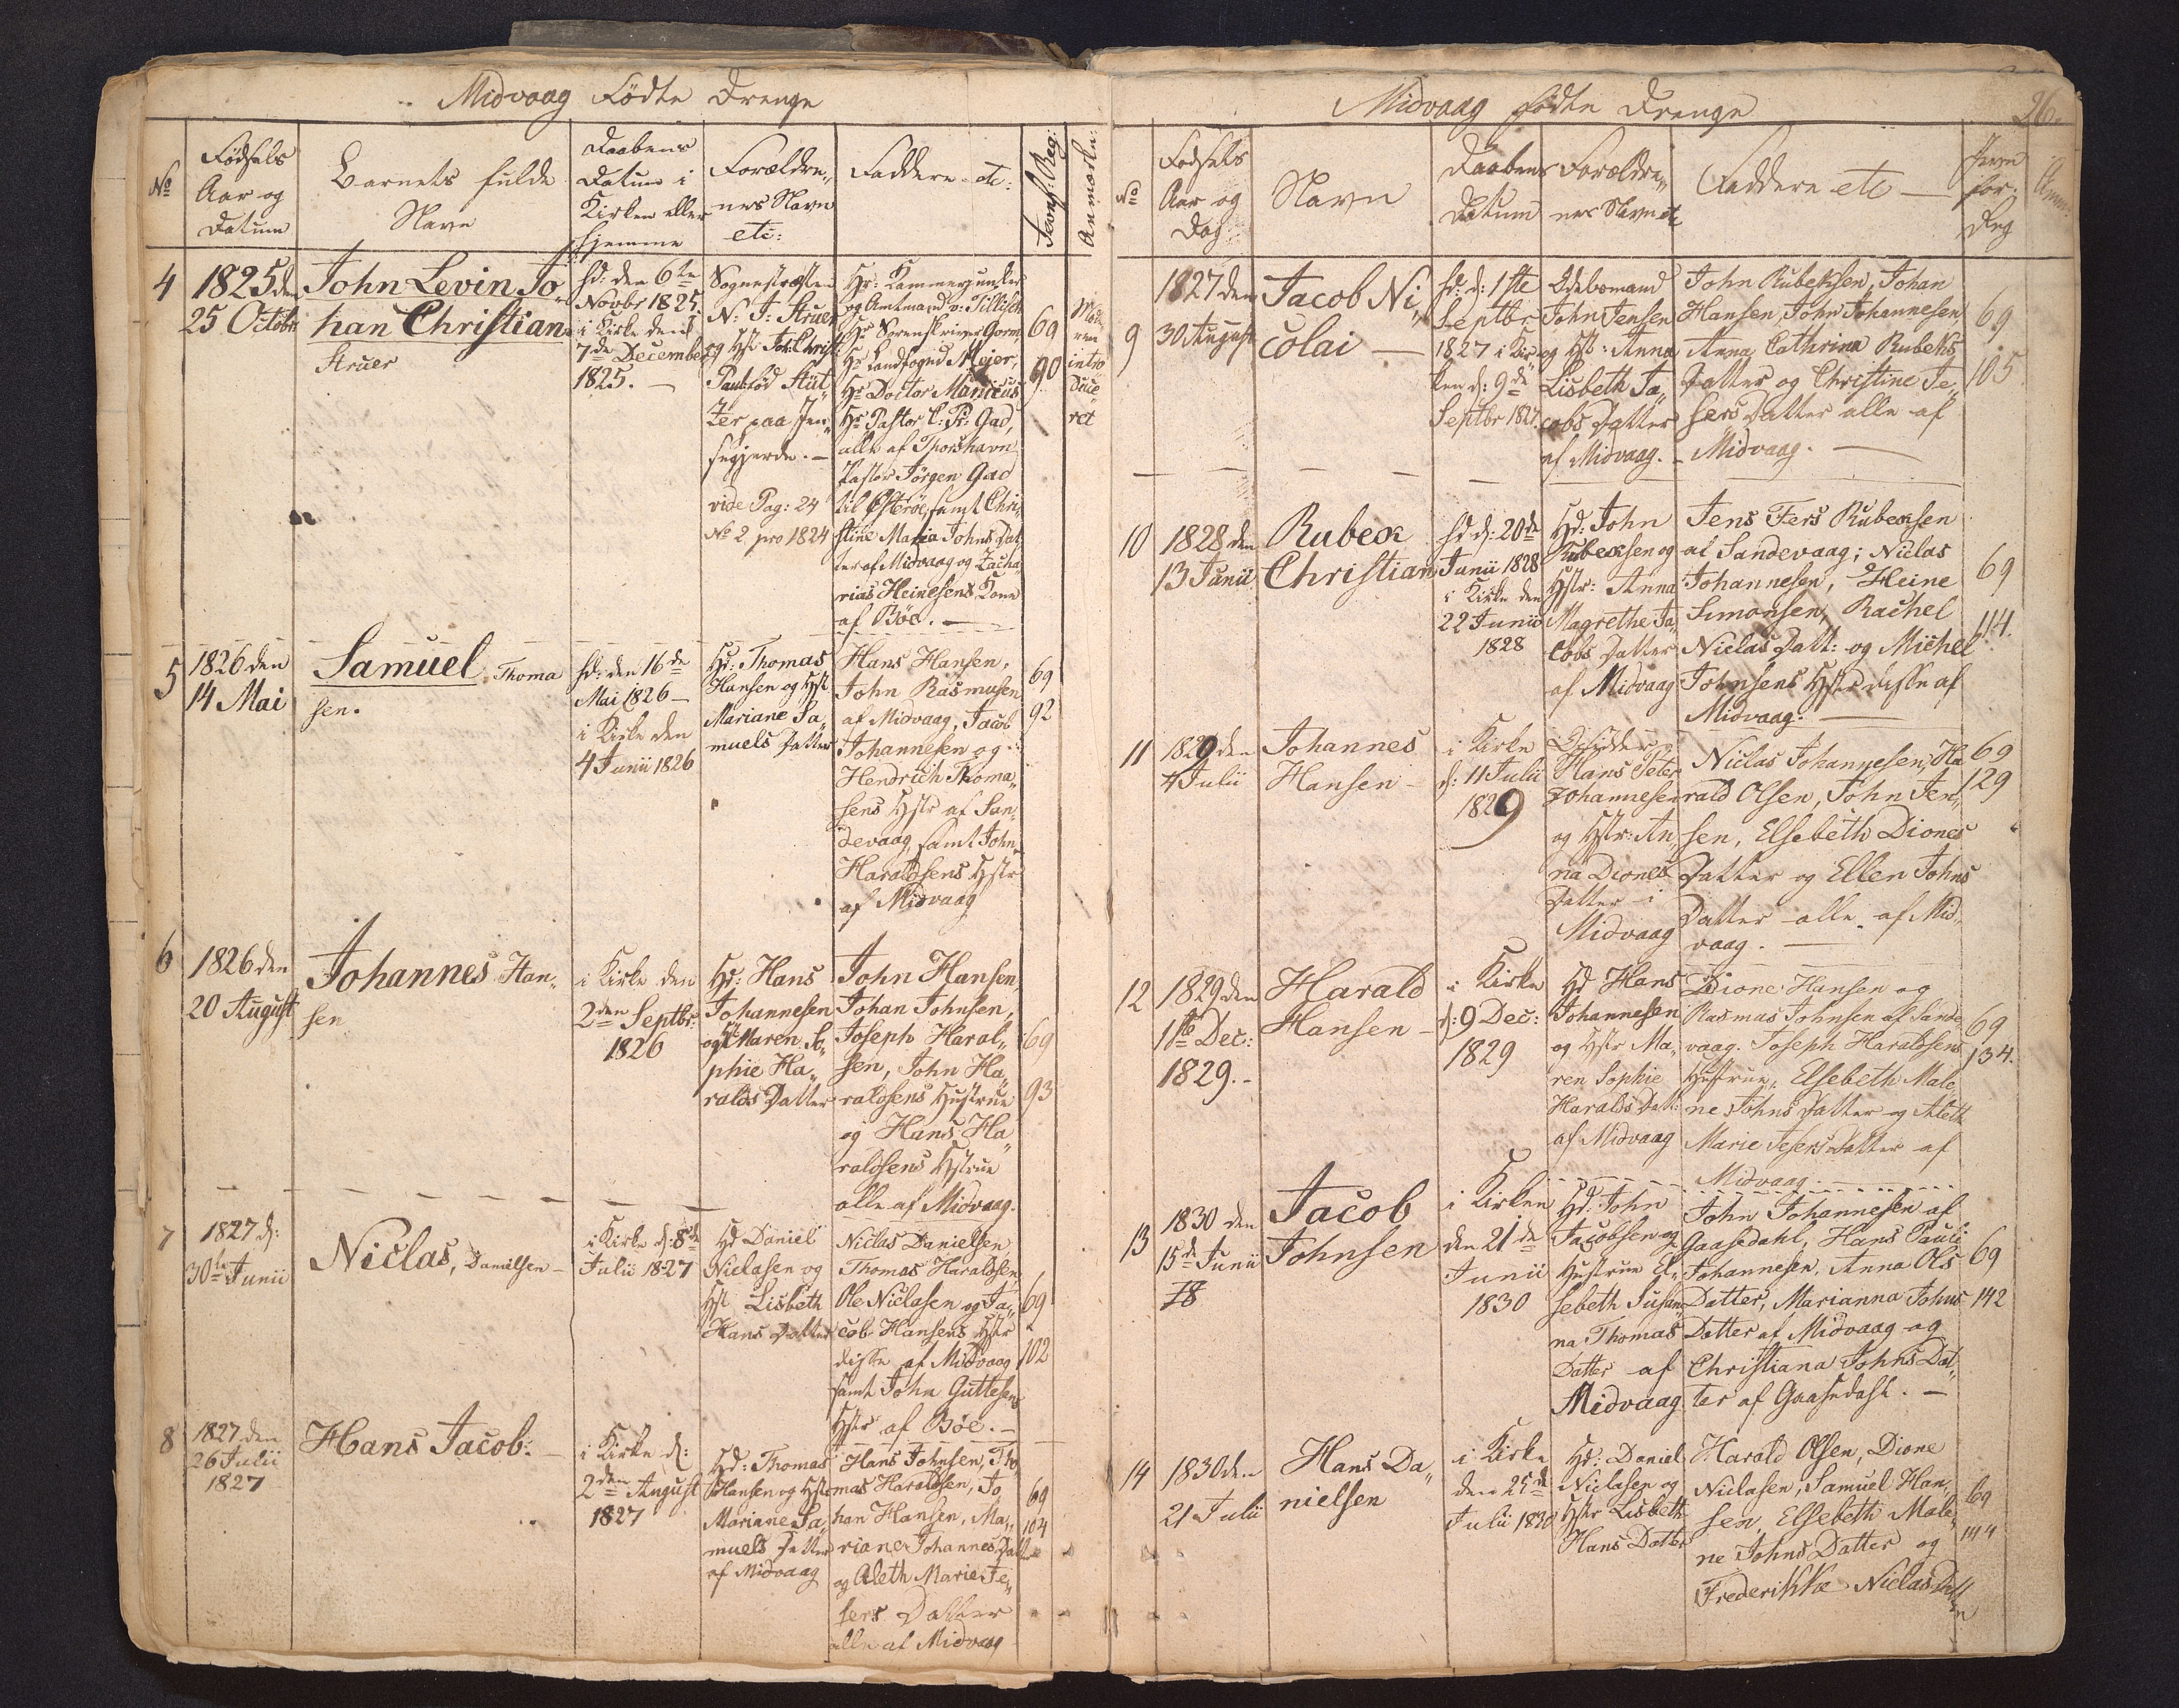 Midvaag Födte Drenge
No
Födsels
Aar og
Datum
Barnets fulde
Navn
Daabens
Datum i
Kirken eller
hjemme
Forældre„
nes Navn
etc:
Faddere etc:
Jevnf: Reg:
Anmærkn:
4
1825 den
25 Octobr
John Levin Jo„
han Christian
Struer
hd: den 6te
Novbr 1825.
i Kirke den
7de December
1825. —
Sognepræsten
N: J: Struer
og Hst: Joh: Christ:
Paul: föd Stüt„
zer paa Jen„
segjerde. —
vide Pag: 24
No 2 pro 1824
Hr: Kammerjunker
og Amtmand v: Tillisch
Hr Sorenskriver Gorm,
Hr Landfoged Mejer,
Hr Doctor Manicus
Hr Pastor C: P: Gad,
alle af Thorshavn
Pastor Jörgen Gad
til Österöe, samt Chri„
stine Maria Johns Dat„
ter af Midvaag og Zacha„
rias Heinesens Kone
af Böe. —
69
90
Mode„
ren
intro„
duce„
ret
5
1826 den
14 Mai
Samuel Thoma
sen.
hd: den 16de
Mai 1826 —
i Kirke den
4 Junii 1826
Hd: Thomas
Hansen og Hst
Mariane Sa„
muels Datter
Hans Hansen,
John Rasmusen
af Midvaag, Jacob
Johannesen og
Hendrich Thoma„
sens Hstr af San„
devaag, samt John
Haraldsens Hstr
af Midvaag
69
92
6
1826 den
20 August
Johannes Han„
sen
i Kirke den
2den Septbr:
1826
Hd: Hans
Johannesen
og Hst Maren So„
phie Ha„
ralds Datter
John Hansen,
Johan Johnsen,
Joseph Haral„
sen, John Ha„
raldsens Hustrue
og Hans Ha„
raldsens Hstrue
alle af Midvaag.
69
93
7
1827 d:
30te Junii
Niclas, Danielsen —
i Kirke d: 8de
Julii 1827
Hd Daniel
Niclasen og
Hst Lisbeth
Hans Datter
Niclas Danielsen,
Thomas Haraldsen,
Ole Niclasen og Ja„
cob Hansens Hstr
disse af Midvaag
samt John Guttesens
Hstr af Böe. —
69
102
8
1827 den
26 Julii
1827
Hans Jacob. —
i Kirke d:
2den August
1827
Hd: Thomas
Hansen og Hstr
Mariane Sa„
muels Datter
af Midvaag
Hans Johnsen, Tho„
mas Haraldsen, Jo„
han Hansen, Ma„
riane Johannes Datter
og Aleth Marie Je„
sers Datter
alle af Midvaag
69
104
Midvaag Födte Drenge
26.
No
Födsels
Aar og
Dag
Navn
Daabens
Datum
Forældre„
nes Navn etc
Faddere etc —
Jevn
för:
Reg
Anm:
9
1827 den
30 August
Jacob Ni„
colai —
hd: d: 1ste
Septbr
1827 i Kir„
ken d: 9de
Septbr 1827.
Odelsmand
John Jensen
og Hst: Anna
Lisbeth Ja„
cobs Datter
af Midvaag. —
John Rubeksen, Johan
Hansen, John Johannesen
Anna Cathrina Rubeks
Datter og Christine Je„
sers Datter alle af
Midvaag. —
69
105
10
1828 den
13 Junii
Rubek
Christian
hd d: 20de
Junii 1828
i Kirke den
22 Junii
1828
Hd: John
Rubeksen og
Hstr: Anna
Magrethe Ja„
cobs Datter
af Midvaag
Jens Fers Rubeksen
af Sandevaag; Niclas
Johannesen, Heine
Simonsen, Rachel
Niclas Datt: og Michel
Johnsens Hstr disse af
Midvaag. —
69
114.
11
1829 den
4 Julii
Johannes
Hansen —
i Kirke
d: 11 Julii
1829
Hans Peter
Johannesen
og Hstr: An„
na Diones
Datter i
Midvaag
Niclas Johannesen, Ha„
rald Olsen, John Jen„
sen, Elsebeth Diones
Datter og Ellen Johns
Datter alle af Mid„
vaag. —
69
129
12
1829 den
1te Dec:
1829. —
Harald
Hansen —
i Kirke
d: 9 Dec:
1829
Hd Hans
Johannesen
og Hstr Ma„
ren Sophie
Haralds Datt:
af Midvaag
Dione Hansen og
Rasmas Johnsen af Sande
vaag. Joseph Haraldsens
Hustrue, Elsebeth Male„
ne Johns Datter og Aleth
Marie Jesers Datter af
Midvaag. —
69
134.
13
1830 den
15de Junii
18
Jacob
Johnsen
i Kirken
den 21de
Junii
1830
Hd: John
Jacobsen og
Hustrue El„
sebeth Susan„
na Thomas
Datter af
Midvaag
John Johannesen af
Gaasedahl, Hans Pauli
Johannesen, Anna Ols
Datter, Marianna Johns
Datter af Midvaag og
Christiana Johns Dat„
ter af Gaasedahl. —
69
142
14
1830 den
21 Julii
Hans Da„
nielsen
i Kirke
den 25de
Julii 1830
Hd: Daniel
Niclasen og
Hstr Lisbeth
Hans Datter
Harald Olsen, Dione
Niclasen, Samuel Han„
sen, Elsebeth Male„
ne Johns Datter og
Frederikke Niclas Datter
69
144